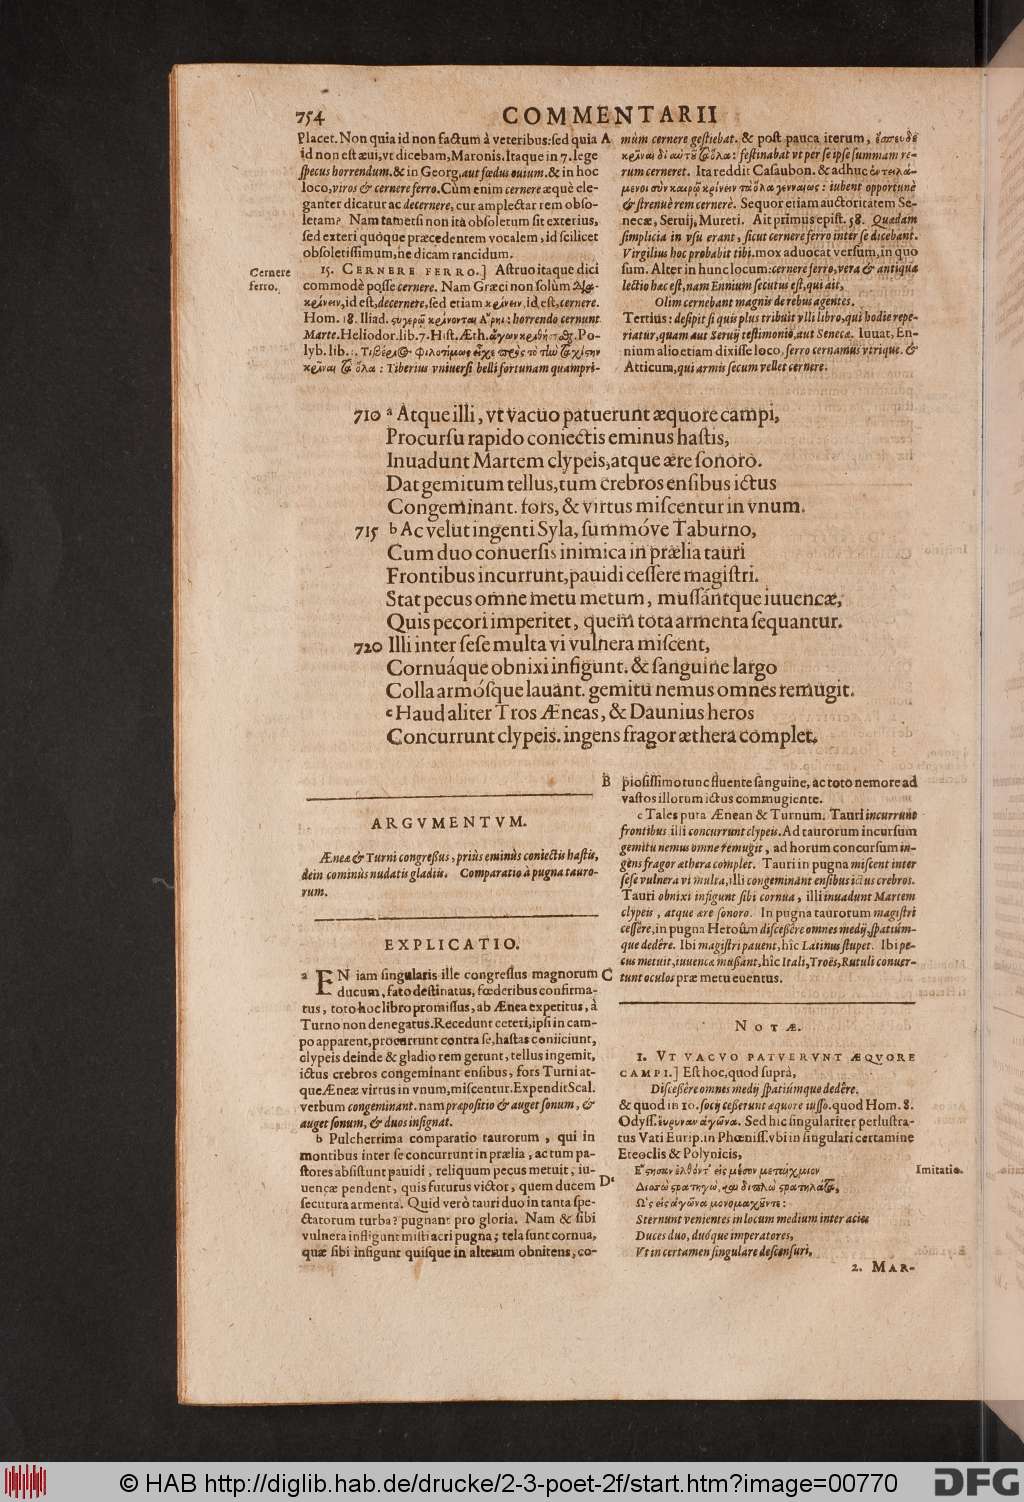 754 COMMENTARII
Placet. Non quia id non factum à veteribus: sed quia A
id non est æui, vt dicebam, Maronis. Itaque in 7. lege
ſpecus horrendum. & in Georg. aut fœdus ouium. & in hoc
loco, viros & cernere ferro. Cùm enim cernere æquè ele-
ganter dicatur ac decernere, cur amplectar rem obſo-
letam? Nam tametſi non ità obſoletum ſit exterius,
ſed exteri quòque præcedentem vocalem, id ſcilicet
obſoletiſſimum, ne dicam rancidum.
Cernere
ferro.
15. CERNERE FERRO.] Aſtruo itaque dici
commodè poſſe cernere. Nam Græci non ſolùm δια-
κρίνειν, id eſt, decernere, ſed etiam κρίνειν, id eſt, cernere.
Hom. 18. Iliad. ςυγερῷ κρίνονται Ἄρηι: horrendo cernunt
Marte. Heliodor. lib. 7. Hiſt. Æth. ἀγων
lyb. lib.
Tiberius vniuerſi belli fortunam quampri-
mùm cernere geſtiebat. & poſt pauca iterum, ἔσπευδε
feſtinabat vt per ſe ipſe ſummam re-
rum cerneret. Ita reddit Caſaubon. & adhuc
iubent opportunè
& ſtrenuè rem cernerè. Sequor etiam auctoritatem Se-
necæ, Seruij, Mureti. Ait primus epiſt. 58. Quædam
ſimplicia in vſu erant, ſicut cernere ferro inter ſe dicebant.
Virgilius hoc probabit tibi. mox aduocat verſum, in quo
ſum. Alter in hunc locum: cernere ferro, vera & antiqua
lectio hæc eſt, nam Ennium ſecutus eſt, qui ait,
Olim cernebant magnis de rebus agentes.
Tertius: deſipit ſi quis plus tribuit vlli libro, qui hodie repe-
riatur, quam aut Seruij teſtimonio, aut Senecæ. Iuuat, En-
nium alio etiam dixiſſe loco, ferro cernamus vtrique. &
Atticum, qui armis ſecum vellet cernere.
710 a Atque illi, vt vacuo patuerunt æquore campi,
Procurſu rapido coniectis eminus haſtis,
Inuadunt Martem clypeis, atque ære ſonoro.
Dat gemitum tellus, tum crebros enſibus ictus
Congeminant. fors, & virtus miſcentur in vnum.
715 b Ac velut ingenti Syla, ſummóve Taburno,
Cum duo conuerſis inimica in prælia tauri
Frontibus incurrunt, pauidi ceſſere magiſtri.
Stat pecus omne metu metum, muſſántque iuuencæ,
Quis pecori imperitet, quem tota armenta ſequantur.
720 Illi inter ſeſe multa vi vulnera miſcent,
Cornuáque obnixi infigunt. & ſanguine largo
Colla armóſque lauant. gemitu nemus omnes remugit.
c Haud aliter Tros Æneas, & Daunius heros
Concurrunt clypeis. ingens fragor æthera complet.
ARGVMENTVM.
Æneæ & Turni congreſſus, priùs eminùs coniectis haſtis,
dein cominùs nudatis gladiis. Comparatio à pugna tauro-
rum.
EXPLICATIO.
a EN iam ſingularis ille congreſſus magnorum C
ducum, fato deſtinatus, fœderibus confirma-
tus, toto hoc libro promiſſus, ab Ænea expetitus, à
Turno non denegatus. Recedunt ceteri, ipſi in cam-
po apparent, procurrunt contra ſe, haſtas coniiciunt,
clypeis deinde & gladio rem gerunt, tellus ingemit,
ictus crebros congeminant enſibus, fors Turni at-
que Æneæ virtus in vnum, miſcentur. Expendit Scal.
verbum congeminant. nam præpoſitio & auget ſonum, &
auget ſonum, & duos inſignat.
b Pulcherrima comparatio taurorum, qui in
montibus inter ſe concurrunt in prælia, ac tum pa-
ſtores abſiſtunt pauidi, reliquum pecus metuit, iu-
uencæ pendent, quis futurus victor, quem ducem D
ſecutura armenta. Quid verò tauri duo in tanta ſpe-
ctatorum turba? pugnant pro gloria. Nam & ſibi
vulnera infigunt miſti acri pugna; tela ſunt cornua,
quæ ſibi infigunt quiſque in alterum obnitens, co-
B pioſiſſimo tunc fluente ſanguine, ac toto nemore ad
vaſtos illorum ictus commugiente.
c Tales puta Ænean & Turnum. Tauri incurrunt
frontibus illi concurrunt clypeis. Ad taurorum incurſum
gemitu nemus omne remugit, ad horum concurſum in-
gens fragor æthera complet. Tauri in pugna miſcent inter
ſeſe vulnera vi multa, illi congeminant enſibus ictus crebros.
Tauri obnixi infigunt ſibi cornua, illi inuadunt Martem
clypeis, atque ære ſonoro. In pugna taurorum magiſtri
ceſſêre, in pugna Heroûm diſceſſêre omnes medij, ſpatiùm-
que dedêre. Ibi magiſtri pauent, hîc Latinus ſtupet. Ibi pe-
cus metuit, iuuencæ muſſant, hîc Itali, Troës, Rutuli conuer-
tunt oculos præ metu euentus.
NOTÆ.
1. VT VACVO PATVERVNT ÆQVORE
CAMPI.] Eſt hoc, quod ſuprà,
Diſceſſêre omnes medij ſpatiúmque dedêre.
& quod in 10. ſocij ceſſerunt æquore iuſſo. quod Hom. 8.
Odyſſ. εὔρυναν ἀγῶνα. Sed hic ſingulariter perluſtra-
tus Vati Eurip. in Phœniſſ. vbi in ſingulari certamine
Eteoclis & Polynicis,
Imitatio.
Ἔςησαν ἐλθόντ' εἰς μέσον μεταίχμιον
Δισσὼ ςρατηγὼ, καὶ διπλὼ ςρατηλάτα,
Ὡς εἰς ἀγῶνα μονομάχȣ
Sternunt venientes in locum medium inter acies
Duces duo, duóque imperatores,
Vt in certamen ſingulare deſcenſuri,
2. MAR-
© HAB http://diglib.hab.de/drucke/2-3-poet-2f/start.htm?image=00770
DFG